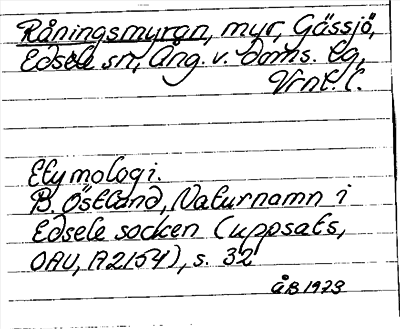 Råningsmyran, myr, Gässjö,
Edsele sn, Ång. v. doms. lg,
Vrnl. l.
Etymologi.
B. Östlund, Naturnamn i
Edsele socken (uppsats,
OAU, A2154), s. 32
ÅB 1973